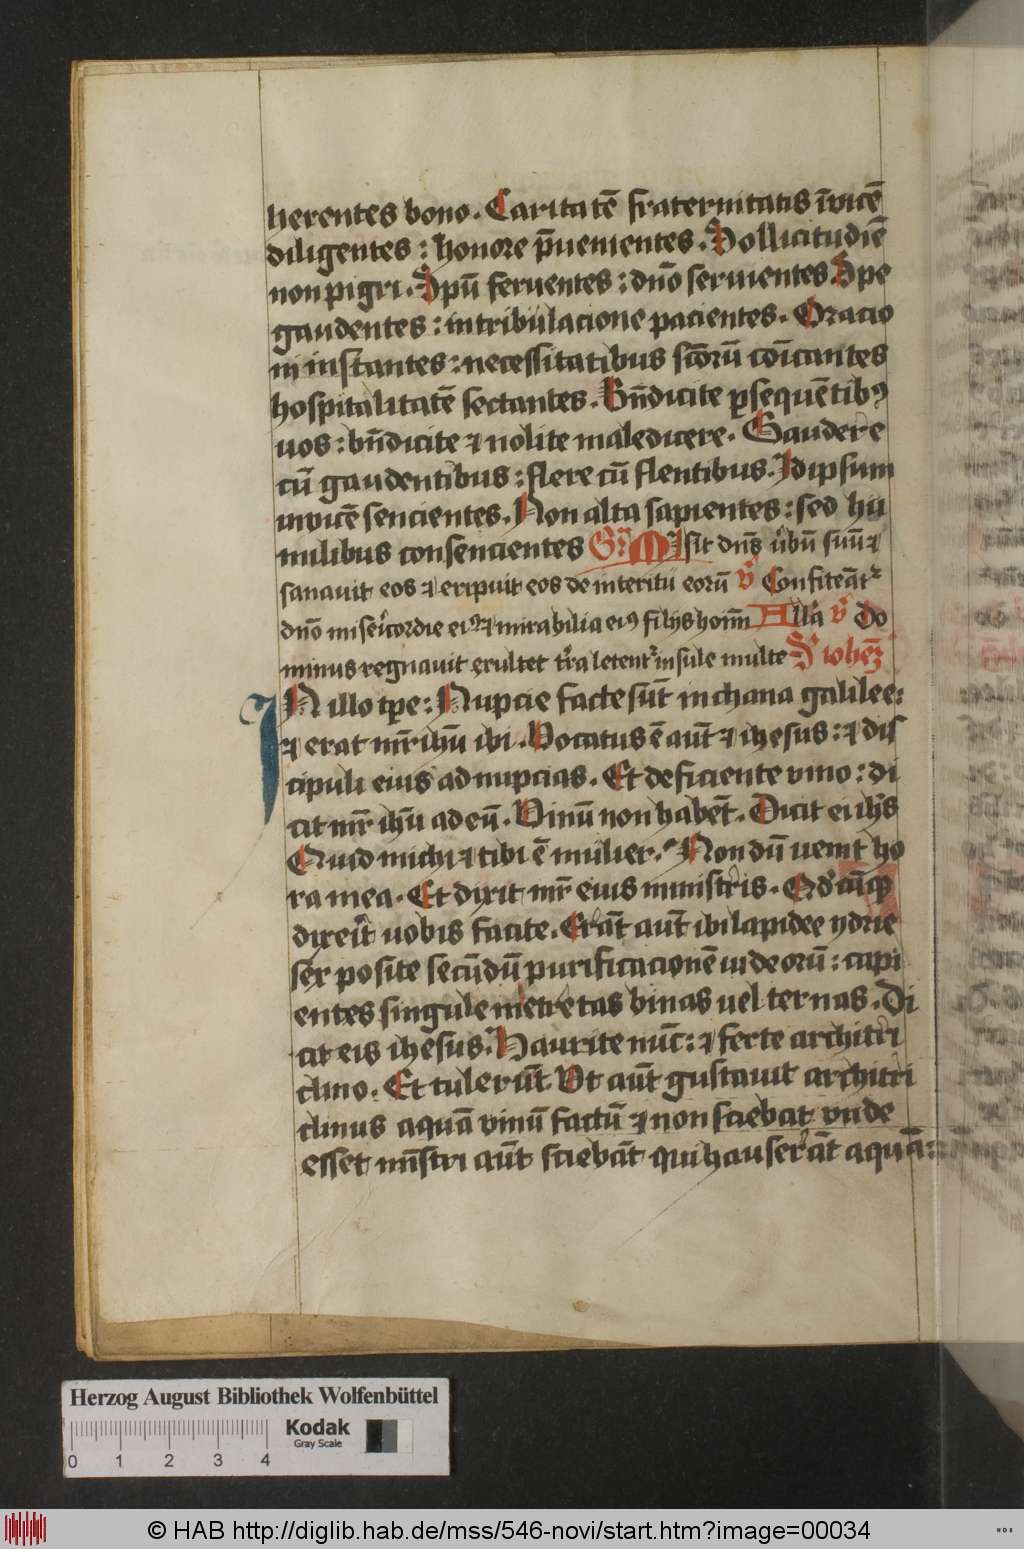 herentes bono. Caritatē fraternitatis īvicē
diligentes: honore p̄uenientes. Sollicitudiē
non pigri. Spū feruentes: dn̄o seruientes. Spe
gaudentes: in tribulacione pacientes. Oracio
ni instantes: necessitatibus sc̄orū cōīcantes
hospitalitatē sectantes. Bn̄dicite ꝑsequētibꝰ
uos: bn̄dicite ⁊ nolite maledicere. Gaudere
cū gaudentibus: flere cū flentibus. Idipsum
invicē sencientes. Non alta sapientes: sed hu
milibus consencientes Gr̄ Misit dn̄s ūbū suū ⁊
sanavit eos ⁊ eripuit eos de interitu eorū v̄ Confiteāt᷑
dn̄o misēicordie eiꝰ ⁊ mirabilia eiꝰ filijs hoīm Allā v̄ Do
minus regnavit exultet t̄ra letent᷑ insule multe S ioheꝫ
IN illo tꝑe: Nupcie facte sūt in chana galilee:
⁊ erat mr̄ ihū ibi. Vocatus ē aūt ⁊ ihesus: ⁊ dis
cipuli eius ad nupcias. Et deficiente vino: di
cit mr̄ ihū ad eū. Vinū non habēt. Dicit ei ih̄s
Quid michi ⁊ tibi ē mulier. Non dū uenit ho
ra mea. Et dixit mr̄ eius ministris. Qd̄cūqꝫ
dixeīt uobis facite. Erāt aūt ibi lapidee ydrie
sex posite secūdū purificacionē iudeorū: capi
entes singule metretas binas uel ternas. Di
cit eis ihesus. Haurite nūc: ⁊ ferte architri
clino. Et tulerūt. Vt aūt gustauit architri
clinus aquā vinū factū ⁊ non sciebat vnde
esset mīstri aūt sciebāt qui hauserāt aquā:
Herzog August Bibliothek Wolfenbüttel
Kodak
Gray Scale
0 1 2 3 4
© HAB http://diglib.hab.de/mss/546-novi/start.htm?image=00034